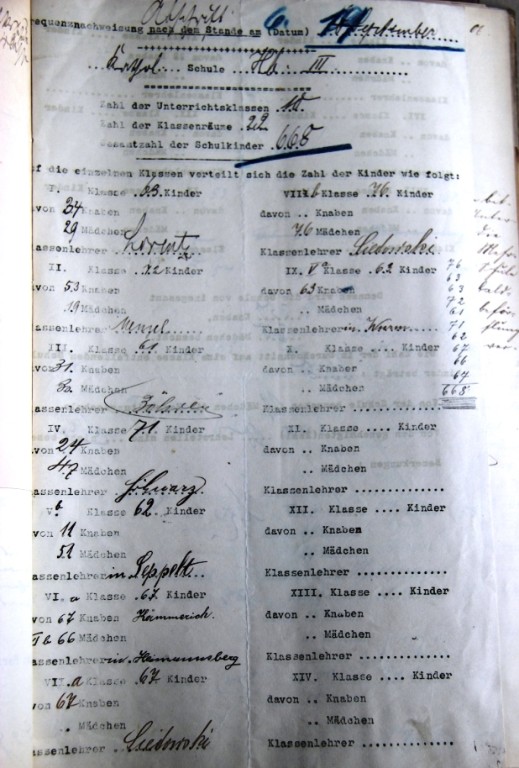 Abschrift
requenznachweisung nach dem Stande am (Datum) 6. September
Kathol. Schule Hb. III
Zahl der Unterrichtsklassen
Zahl der Klassenräume 22
Gesamtzahl der Schulkinder 668
f die einzelnen Klassen verteilt sich die Zahl der Kinder wie folgt:
I. Klasse 63 Kinder
von 34 Knaben
29 Mädchen
lassenlehrer Lorentz
II. Klasse 72 Kinder
von 53 Knaben
19 Mädchen
lassenlehrer Menzel
III. Klasse 61 Kinder
von 31 Knaben
30 Mädchen
lassenlehrer
IV. Klasse 71 Kinder
von 24 Knaben
47 Mädchen
lassenlehrer Schwarz
V b Klasse 62 Kinder
von 11 Knaben
51 Mädchen
lassenlehrerin Seppelt
VI. a Klasse 67 Kinder
von 67 Knaben Hämmerich
66 Mädchen
lassenlehrerin Heimannsberg
VII. a Klasse 67 Kinder
von 67 Knaben
.. Mädchen
lassenlehrer Liedowski
VIII b Klasse 76 Kinder
davon .. Knaben
76 Mädchen
Klassenlehrer Liedowski
IX. Va Klasse 62 Kinder
davon 63 Knaben
.. Mädchen
Klassenlehrerin
X. Klasse .... Kinder
davon .. Knaben
.. Mädchen
Klassenlehrer ..............
XI. Klasse .... Kinder
davon .. Knaben
.. Mädchen
Klassenlehrer ..............
XII. Klasse .... Kinder
davon .. Knaben
.. Mädchen
Klassenlehrer ..............
XIII. Klasse .... Kinder
davon .. Knaben
.. Mädchen
Klassenlehrer ..............
XIV. Klasse .... Kinder
davon .. Knaben
.. Mädchen
Klassenlehrer ..............
76
63
63
72
61
71
62
67
66
67
668